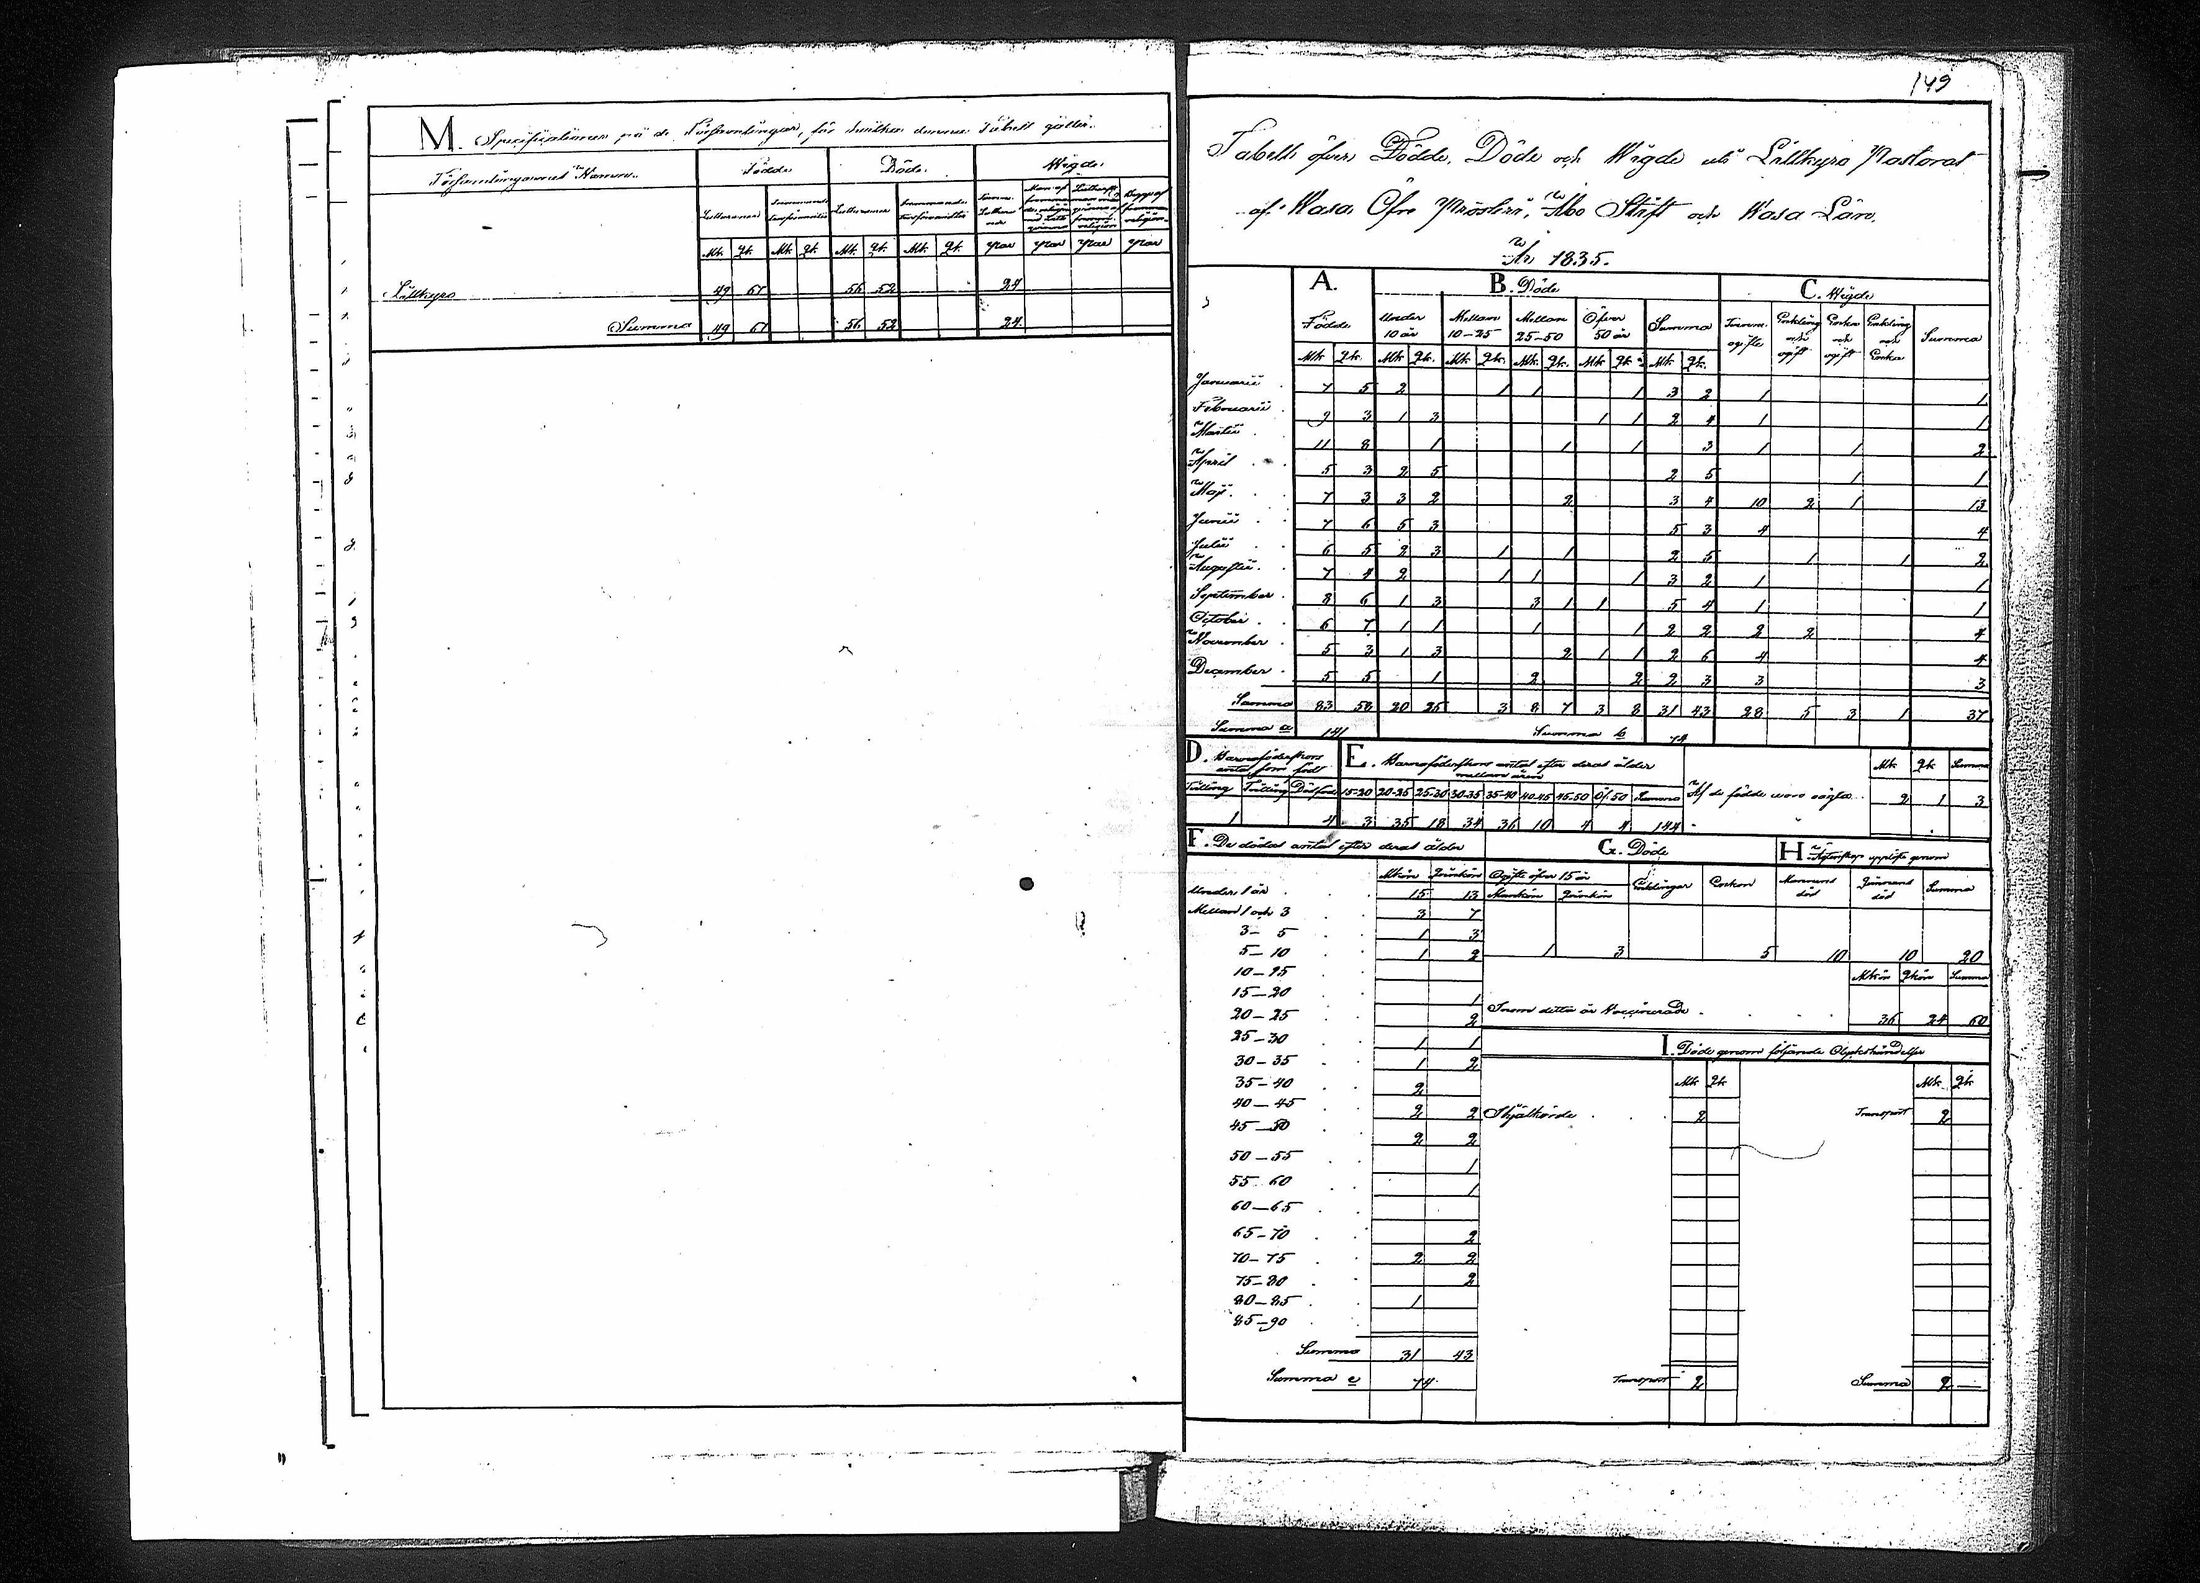 M. Specifikationer på de Församlingar, för hvilka denna Tabell gäller.
Församlingarnas Namn. Födde Döde. Wigde.
Lutheraner Lutheraner
Mk. Qk. Mk. Qk. Mk. Qk. Mk. Qk. Par Par Par Par
Lillkyro 49 67 56 52 24
Summa 49 67 56 52 24
149
Tabell öfver Födde, Döde och Wigde uti Lillkyro Pastorat
af Wasa Öfre Prosteri, Åbo Stift och Wasa Län.
År 1835.
A. B. Döde C. Wigde
Födde Under 10 år Mellan 10-25 Mellan 25-50 Öfver 50 år Summa ogifte Enkling och ogift Enka och ogift Enkling och Enka Summa
Mk Qk. Mk Qk. Mk Qk. Mk. Qk. Mk Qk Mk Qk.
Januarii 7 5 2 1 1 1 3 2 1 1
Februarii 9 3 1 3 1 1 2 4 1 1
Martii 11 8 1 1 1 3 1 1 2
April 5 3 2 5 2 5 1 1
Maji 7 3 3 2 2 3 4 10 2 1 13
Junii 7 6 5 3 5 3 4 4
Julii 6 5 2 3 1 1 2 5 1 1 2
Augustii 7 4 2 1 1 1 3 2 1 1
September 8 6 1 3 3 1 1 5 4 1 1
October 6 7 1 1 1 1 2 2 2 2 4
November 5 3 1 3 2 1 1 2 6 4 4
December 5 5 1 2 2 2 3 3 3
Summa 83 58 20 25 3 8 7 3 8 31 43 28 5 3 1 37
Summa a 141 Summa b 74
D. Barnsföderskors antal som födt E. Barnsföderskors antal efter deras ålder mellan åren Mk Qk Summa
Tvilling Trilling Dödfödt 15-20 20-25 25-30 30-35 35-40 40-45 45-50 Öf. 50 Summa Af de födde woro oägta 2 1 3
1 4 3 35 18 34 36 10 4 4 144
F. De dödas antal efter deras ålder G. Döde H Äktenskap upplöste genom
Mkön Qvinkön Ogifte öfver 15 år Enklingar Enkor Mannens död Qvinnans död Summa
Under 1 år 15 13 Mankön Qvinkön
Mellan 1 och 3 3 7
3- 5 1 3
5-10 1 2 1 3 5 10 10 20
10-15 Mkön Qkön Summa
15-20 1
Inom detta år Vaccinerade 36 24 60
20-25 2
25-30 1 1
I. Döde genom följande Olyckshändelser
30-35 1 2
Mk Qk Mk. Qk.
35-40 2
40-45 2 2 Ihjälkörde 2 Transport 2
45-50 2 2
50-55 1
55 60 1
60-65
65-70 2
70-75 2 2
75-80 2
80-85 1
85-90
Summa 31 43
Summa c 74 Transport 2 Summa 2